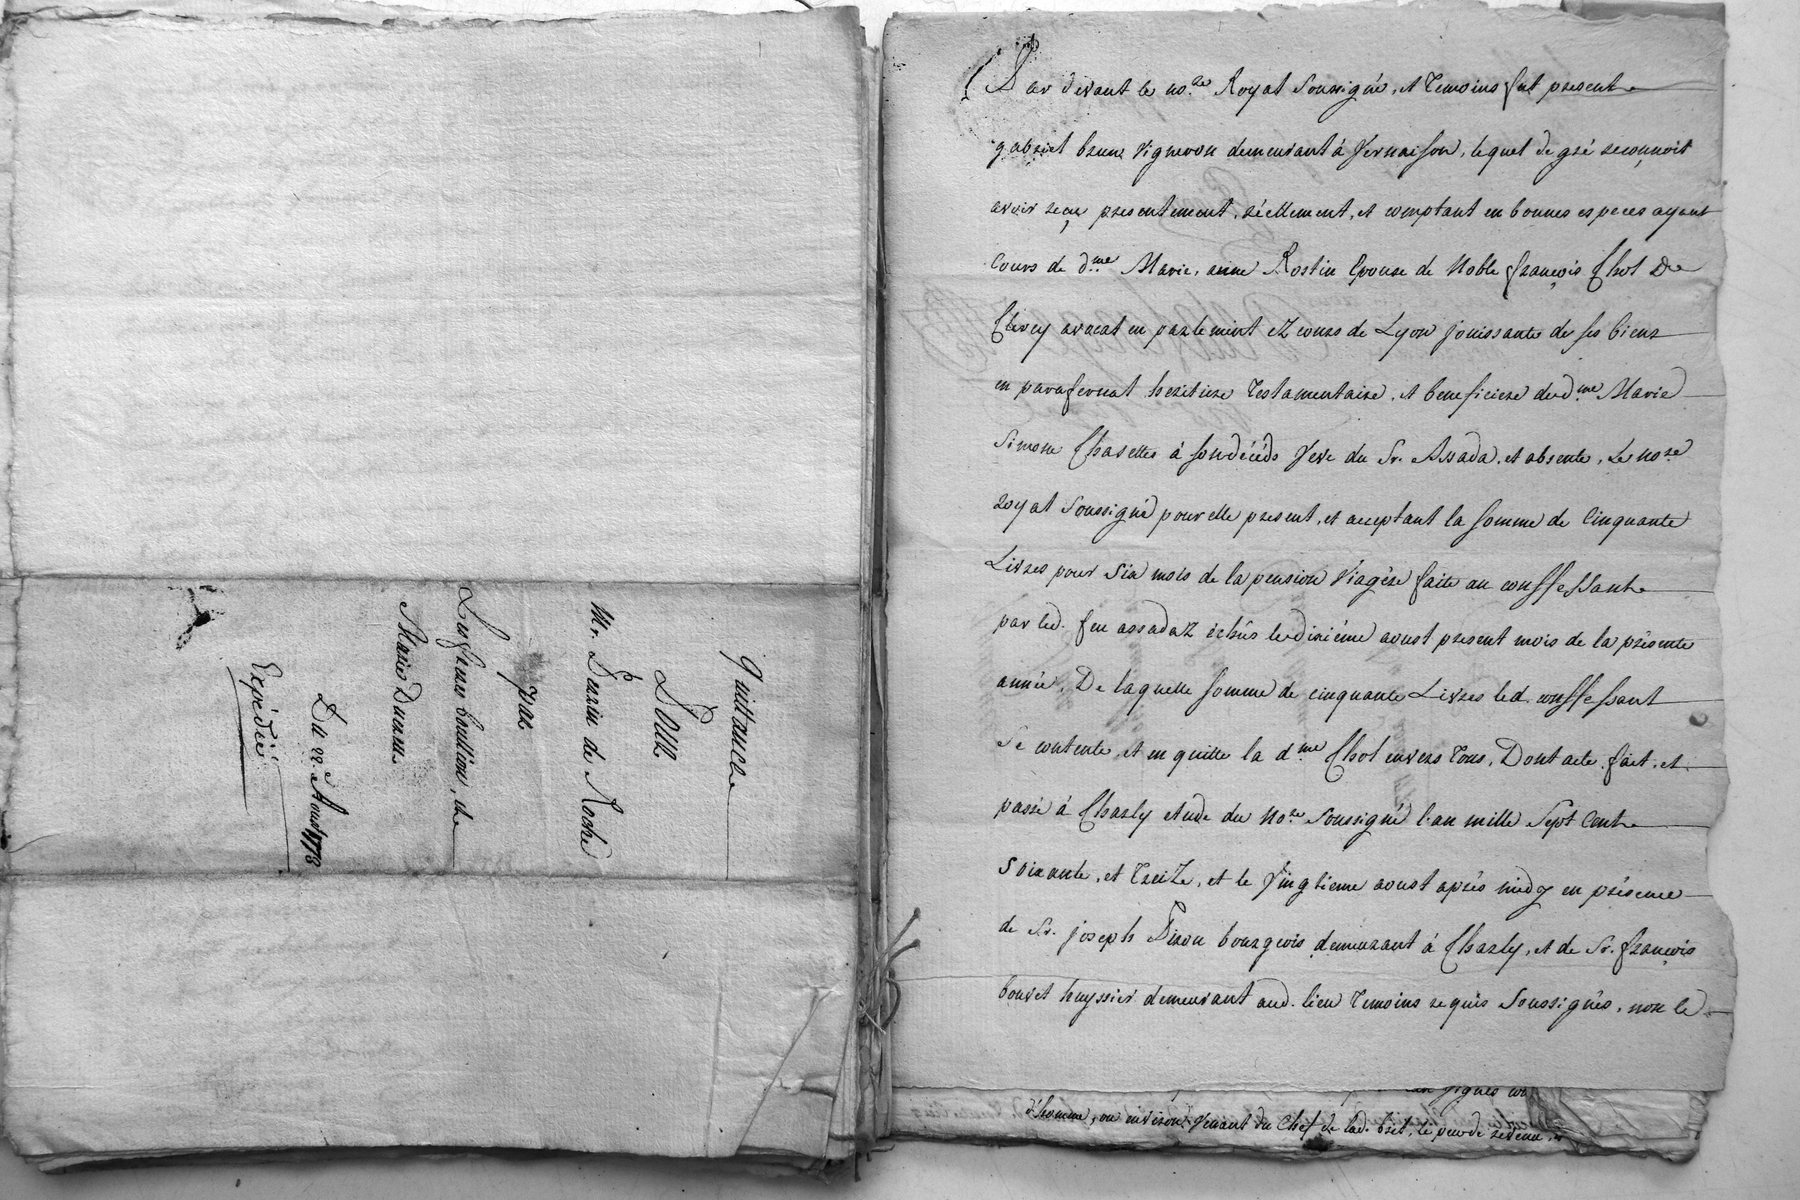 quittance
Pour
Mr. Perrin de Roche
par
Les freres boullion, et
Marie Ducreux
Du 22. Aoust 1773
Expédiée
Par devant le no.re Royal Soussigné, et Temoins fut present
gabriel brun vigneron demeurant à Vernaison, lequel de gré reconnoit
avoir reçu presentement, réellement, et comptant en bonnes especes ayant
Cours de d.me Marie, anne Rostin Epouse de Noble françois Chol De
Clercy avocat en parlement et cours de Lyon jouissante de ses biens
en parafernal heritiere Testamentaire, et beneficiere de d.me Marie
Simone Charettes à son décéds veve du Sr. Assada, et absente, Le no.re
royal Soussigné pour elle present, et acceptant la somme de Cinquante
Livres pour Six mois de la pension viagère faite au conffessant
par led. feu assadaz échus le dixiéme aoust present mois de la présente
année, De laquelle somme de cinquante Livres led. conffessant
Se contente et en quitte la d.me Chol envers Tous, Dont acte, fait, et
passé à Charly etude du no.re Soussigné l'an mille Sept Cent
Soixante, et Treize, et le vingtieme aoust après midy en présence
de Sr. joseph Pison bourgeois demeurant à Charly, et de Sr. françois
bouvet huyssier demeurant aud. lieu Temoins requis Soussignés, non le
d'homme, ou environ venant du Chef de lad. , le peu de revenu